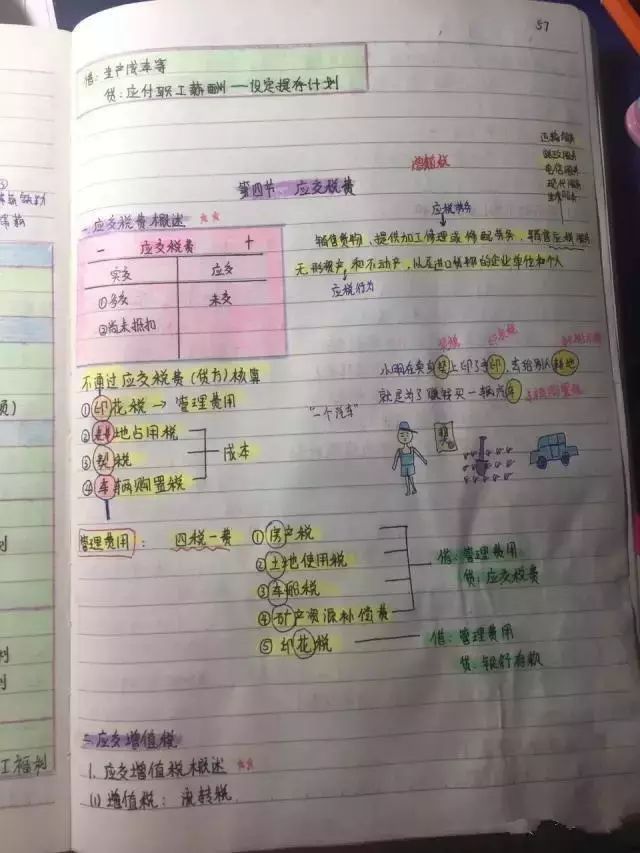 57
借：生产成本等
贷：应付职工薪酬—设定提存计划
增值税
运输服务
邮政服务
电信服务
现代服务
第四节 应交税费
应税劳务
一、应交税费概述 ★★
销售货物、提供加工修理或修配劳务、销售应税服务
无形资产和不动产，以及进口货物的企业单位和个人
应税行为
－ 应交税费 ＋
实交 应交
①多交 未交
②尚未抵扣
不通过应交税费(贷方)核算
①印花税 → 管理费用
②耕地占用税
③契税
④车辆购置税
成本
契税
印花税
小明在卖身契上印了手印，去给别人耕地
就是为了赚钱买一辆汽车
车辆购置税
"一个汽车"
契
管理费用： 四税一费
①房产税
②土地使用税
③车船税
④矿产资源补偿费
⑤印花税
借：管理费用
贷：应交税费
借：管理费用
贷：银行存款
二、应交增值税
1. 应交增值税概述 ★★
(1) 增值税：流转税
工福利